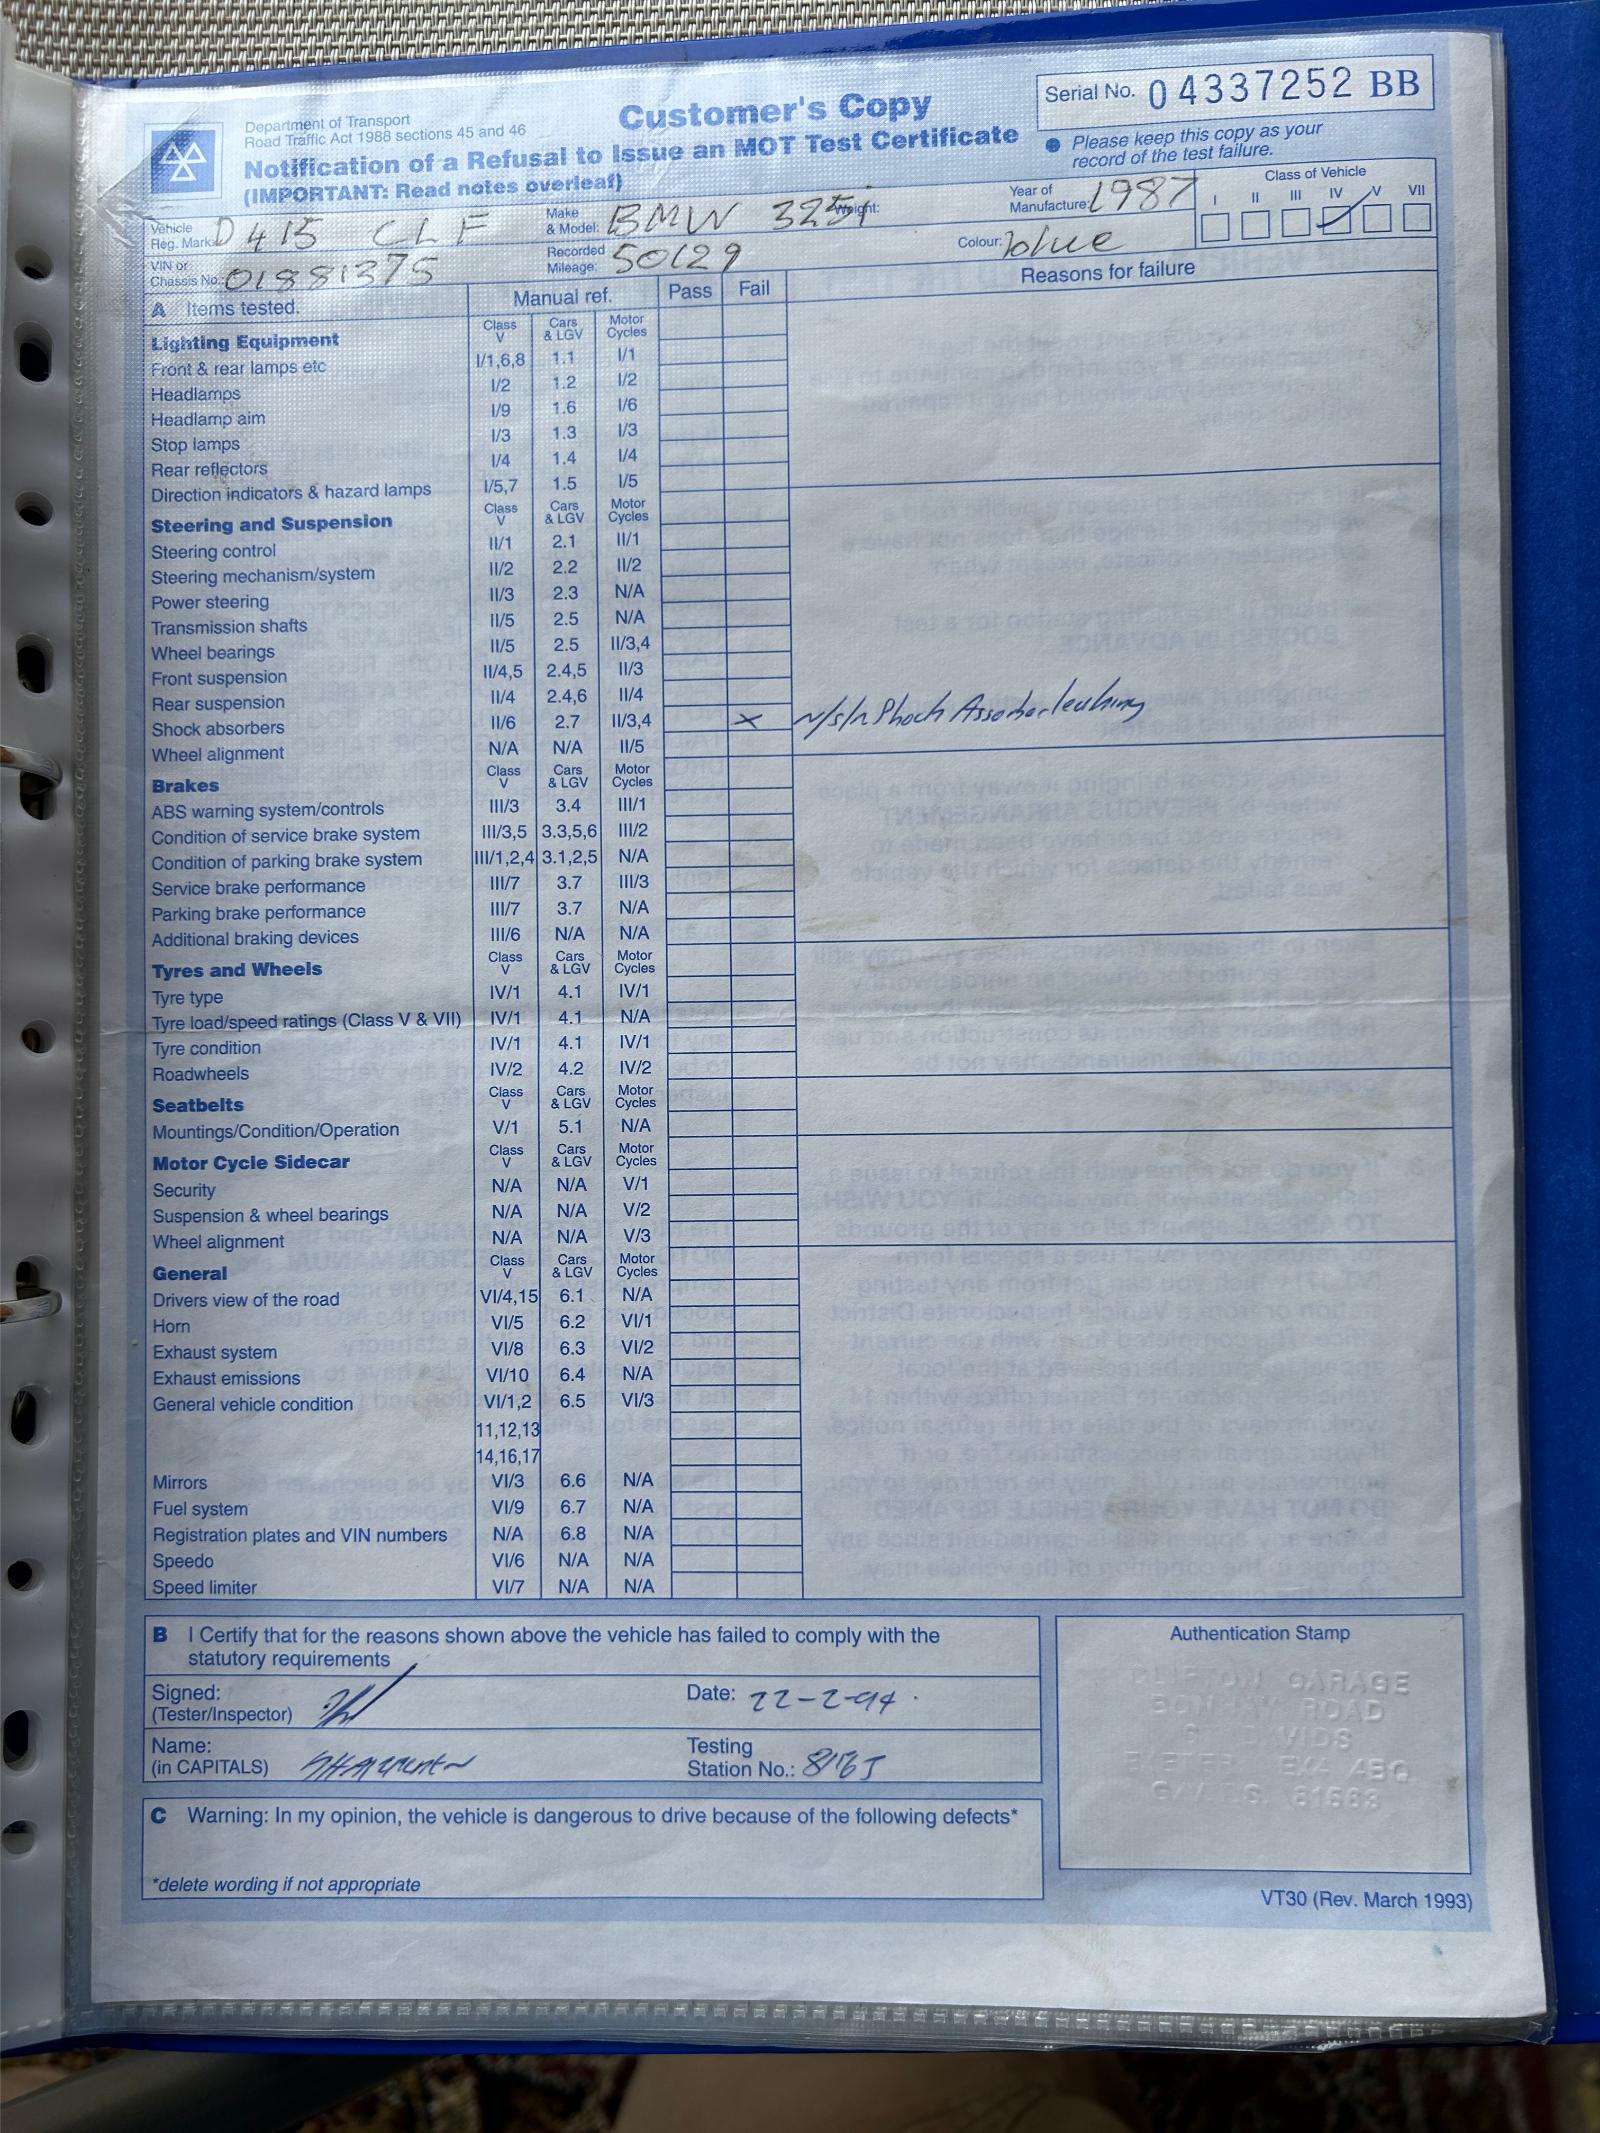 Department of Transport
Road Traffic Act 1988 sections 45 and 46
Customer's Copy
Notification of a Refusal to Issue an MOT Test Certificate
(IMPORTANT: Read notes overleaf)
Serial No. 04337252 BB
● Please keep this copy as your
record of the test failure.
Vehicle Reg. Mark: D415 CLF
Make & Model: BMW 325i
Weight:
Year of Manufacture: 1987
Class of Vehicle
I II III IV V VII
VIN or Chassis No.: 01881375
Recorded Mileage: 50129
Colour: blue
A Items tested. Manual ref. Pass Fail Reasons for failure
Lighting Equipment Class V Cars & LGV Motor Cycles
Front & rear lamps etc I/1,6,8 1.1 I/1
Headlamps I/2 1.2 I/2
Headlamp aim I/9 1.6 I/6
Stop lamps I/3 1.3 I/3
Rear reflectors I/4 1.4 I/4
Direction indicators & hazard lamps I/5,7 1.5 I/5
Steering and Suspension Class V Cars & LGV Motor Cycles
Steering control II/1 2.1 II/1
Steering mechanism/system II/2 2.2 II/2
Power steering II/3 2.3 N/A
Transmission shafts II/5 2.5 N/A
Wheel bearings II/5 2.5 II/3,4
Front suspension II/4,5 2.4,5 II/3
Rear suspension II/4 2.4,6 II/4
Shock absorbers II/6 2.7 II/3,4 x N/S/R Shock Assorber leaking
Wheel alignment N/A N/A II/5
Brakes Class V Cars & LGV Motor Cycles
ABS warning system/controls III/3 3.4 III/1
Condition of service brake system III/3,5 3.3,5,6 III/2
Condition of parking brake system III/1,2,4 3.1,2,5 N/A
Service brake performance III/7 3.7 III/3
Parking brake performance III/7 3.7 N/A
Additional braking devices III/6 N/A N/A
Tyres and Wheels Class V Cars & LGV Motor Cycles
Tyre type IV/1 4.1 IV/1
Tyre load/speed ratings (Class V & VII) IV/1 4.1 N/A
Tyre condition IV/1 4.1 IV/1
Roadwheels IV/2 4.2 IV/2
Seatbelts Class V Cars & LGV Motor Cycles
Mountings/Condition/Operation V/1 5.1 N/A
Motor Cycle Sidecar Class V Cars & LGV Motor Cycles
Security N/A N/A V/1
Suspension & wheel bearings N/A N/A V/2
Wheel alignment N/A N/A V/3
General Class V Cars & LGV Motor Cycles
Drivers view of the road VI/4,15 6.1 N/A
Horn VI/5 6.2 VI/1
Exhaust system VI/8 6.3 VI/2
Exhaust emissions VI/10 6.4 N/A
General vehicle condition VI/1,2 6.5 VI/3
11,12,13
14,16,17
Mirrors VI/3 6.6 N/A
Fuel system VI/9 6.7 N/A
Registration plates and VIN numbers N/A 6.8 N/A
Speedo VI/6 N/A N/A
Speed limiter VI/7 N/A N/A
B I Certify that for the reasons shown above the vehicle has failed to comply with the
statutory requirements
Signed:
(Tester/Inspector)
Date: 22-2-94.
Name:
(in CAPITALS)
Testing
Station No.:
C Warning: In my opinion, the vehicle is dangerous to drive because of the following defects*
*delete wording if not appropriate
Authentication Stamp
GARAGE
ROAD
EX4 4BQ
VT30 (Rev. March 1993)